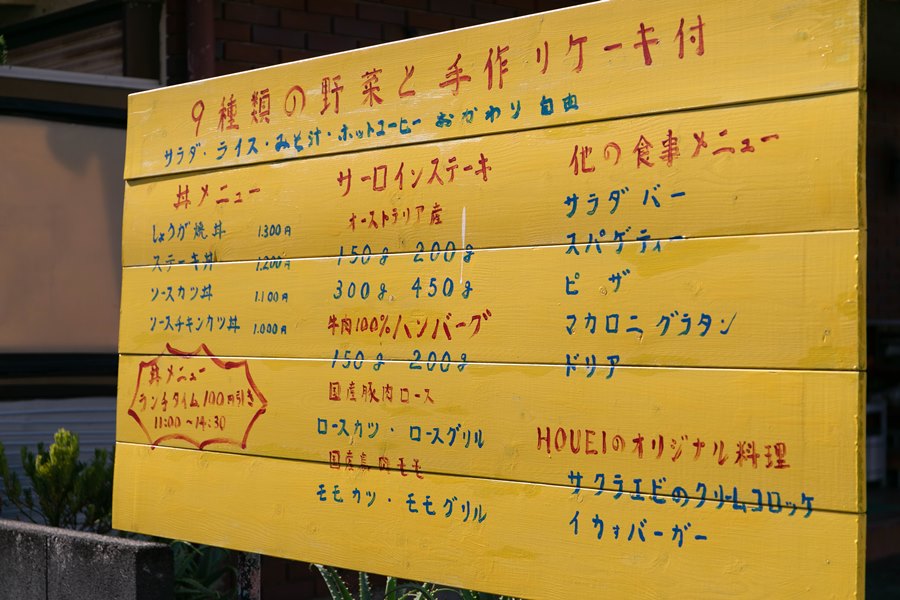 9種類の野菜と手作りケーキ付
サラダ・ライス・みそ汁・ホットコーヒーおかわり自由
丼メニュー
しょうが焼丼 1.300円
ステーキ丼 1.200円
ソースカツ丼 1.100円
ソースチキンカツ丼 1.000円
丼メニュー
ランチタイム100円引き
11:00〜14:30
サーロインステーキ
オーストラリア産
150g 200g
300g 450g
牛肉100%ハンバーグ
150g 200g
国産豚肉ロース
ロースカツ・ロースグリル
国産鶏肉モモ
モモカツ・モモグリル
他の食事メニュー
サラダバー
スパゲティー
ピザ
マカロニグラタン
ドリア
HOUEIのオリジナル料理
サクラエビのクリームコロッケ
イウォバーガー